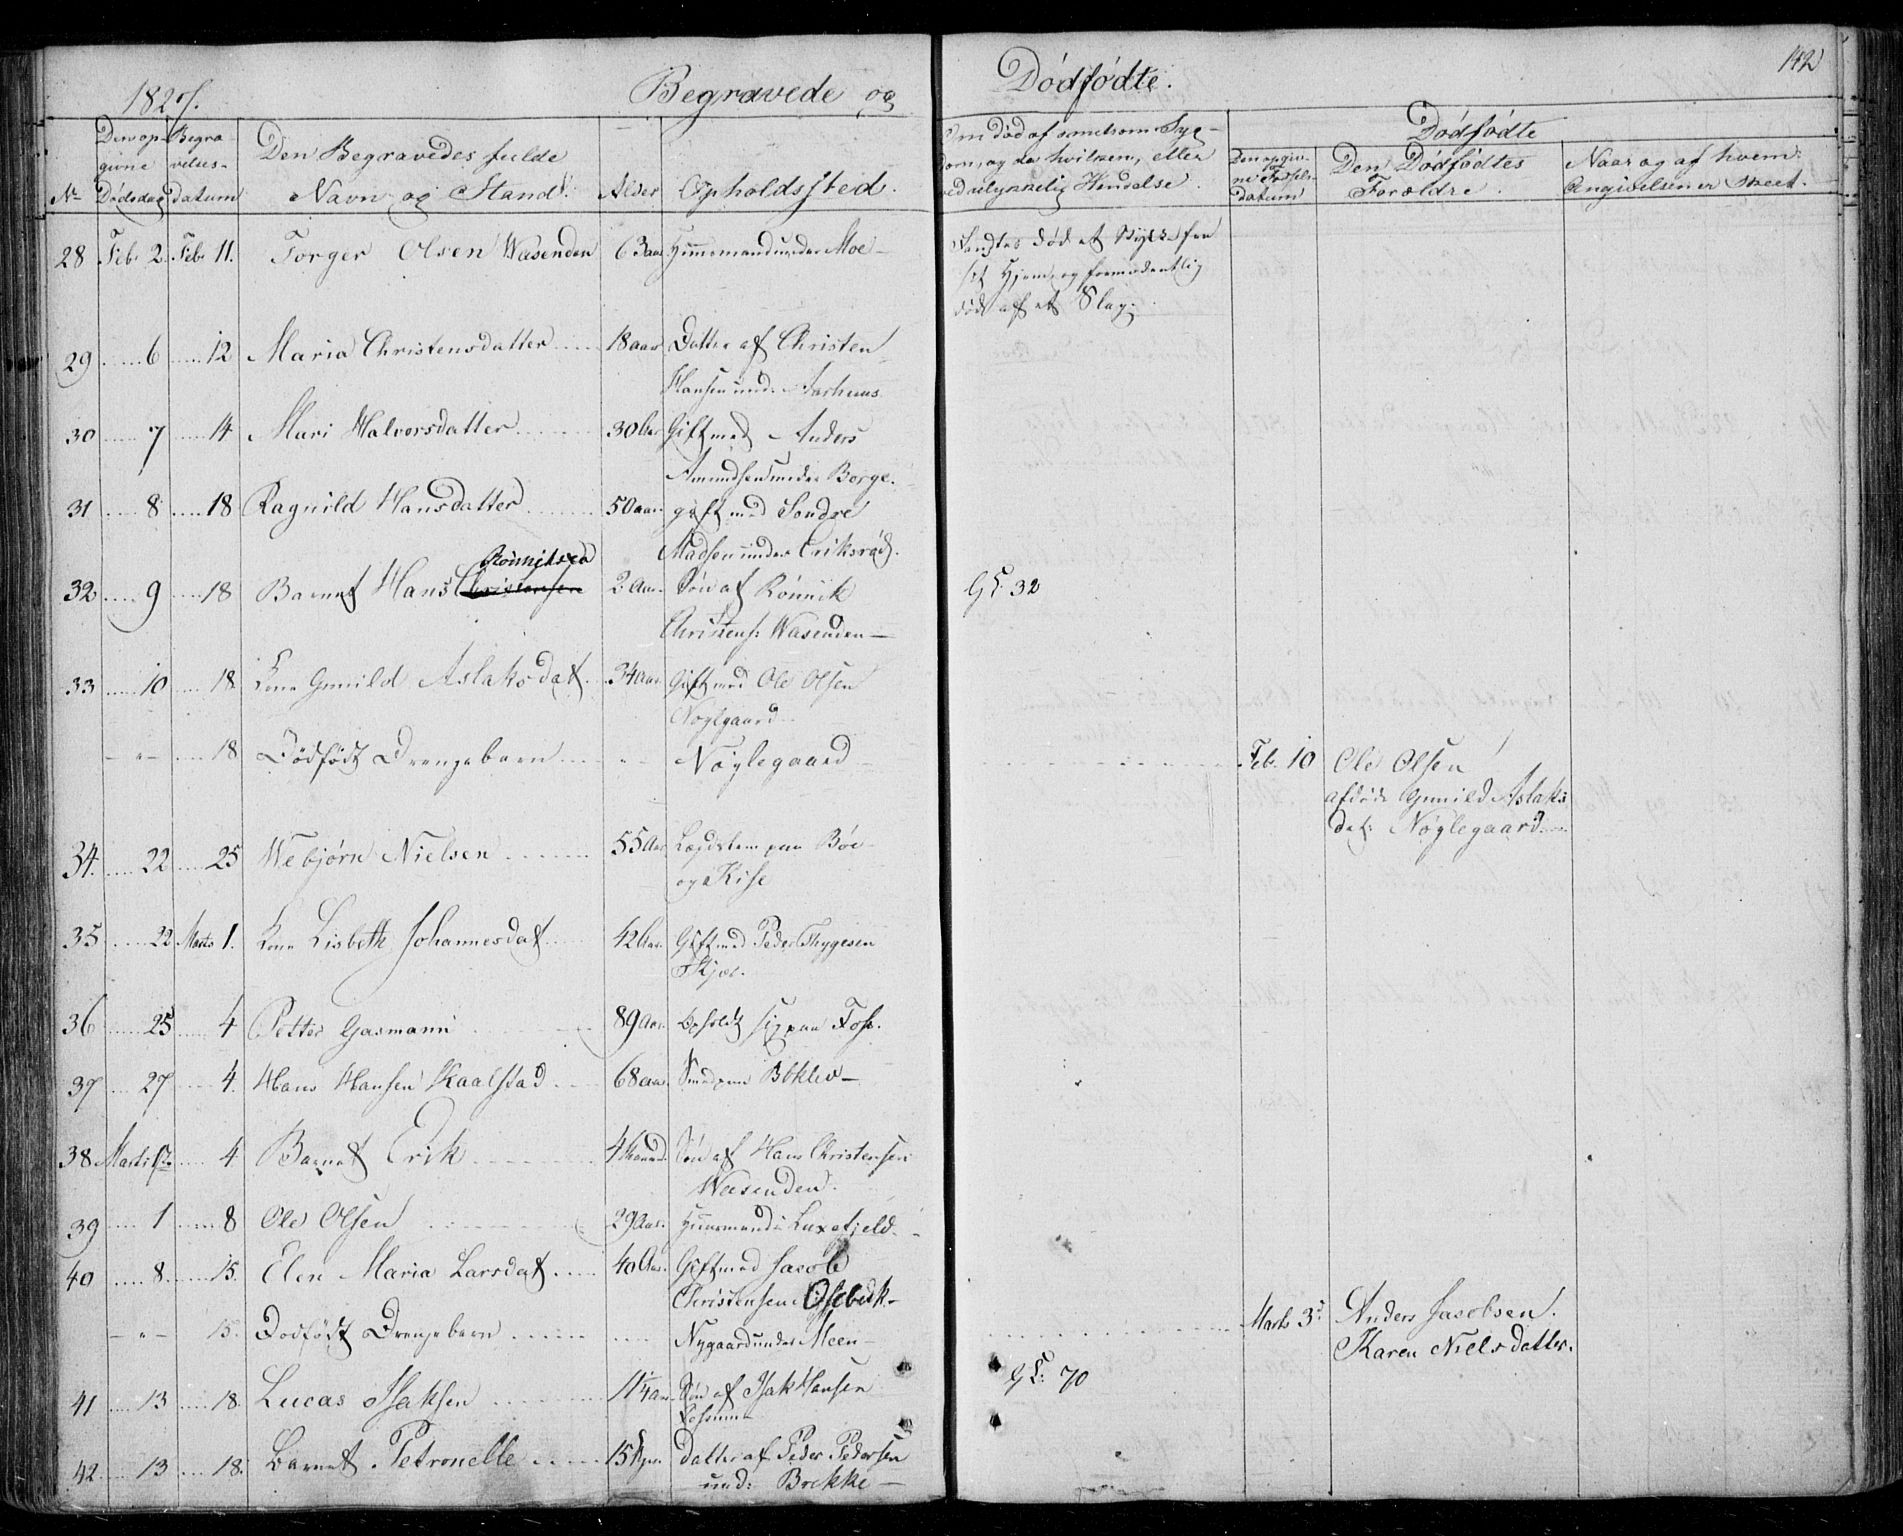 1827.
Begravede og
Dødfødte.
142
Den op-
givne
Dødsdag
Begra-
velses-
datum
Den Begravedes fulde
Navn og Stand.
Alder
Opholdssted.
Om død af som Syg-
dom, og da hvilken, eller
ved ulykkelig Hændelse.
Dødfødte
Den opgiv-
ne Fødsels-
datum
Den Dødfødtes
Forældre.
Naar og af hvem
Angivelsen er skeet.
No
28 Feb. 2. Feb. 11. Torger Olsen Wasenden 63 aar Huusmand under Moe
fandtes død et Stykke fra
sit Hjem og formodentlig
død af et Slag.
29 6 12 Maria Christensdatter 18 aar Datter af Christen
Hansen und. Aarhuus
30 7 14 Mari Halvorsdatter 30 Aar Gift med Anders
Amundsen under Borge.
31 8 18 Ragnild Hansdatter 50 aar gift med Sondre
Madsen under Eriksrød.
Rönniksen
32 9 18 Barnet Hans Christensen 2 Aar Søn af Rönnik
Christens: Wasenden
G L. 32
33 10 18 Kone Gunild Aslaksdat. 34 Aar Gift med Ole Olsen
Noglgaard
18 Dödfödt Drengebarn Nöylegaard
Feb. 10 Ole Olsen
afdøde Gunild Aslaks
dat: Nøglegaard
34. 22 25 Webjørn Nielsen 55 Aar Lægdslem paa Böe
og Kise
35 22 Marts 1. Kone Lisbeth Johannesdat. 42 Aar Gift med Peder Thygesen
Skjæl.
36 25 4 Petter Gasmann 89 Aar Opholdt sig paa Foss.
37 27 4. Hans Hansen Kaalstad 68 aar. Smed paa Böklev
38 Marts 1ste 4 Barnet Erik 4 Maaned. Søn af Hans Christensen
Wasenden.
39 1 8 Ole Olsen 29 Aar. Huusmand i Luxefjeld
40 8. 15. Elen Maria Larsdat. 40 Aar. Gift med Jacob
Christensen Ossebak
15. Dodfödt Drengebarn Nygaard under Meen
Marts 3. Anders Jacobsen.
Karen Nielsdatter.
41 13 18. Lucas Isaksen 11 1/4 aar Søn af Isak Hansen
G L: 70
42 13 18. Barnet Petronelle 15 Uger Datter af Peder Pedersen
und: Brekke